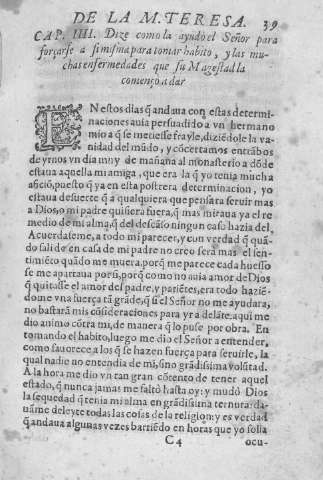 DE LA M. TERESA. 39
CAP. IIII. Dize como la ayudó el Señor para
forçarse a si misma para tomar habito, y las mu-
chas enfermedades que su Magestad la
començo a dar
EN estos dias q̃ andaua con estas determi-
naciones auia persuadido a vn hermano
mio a q̃ se metiesse frayle, diziẽdole la va-
nidad del mũdo, y cõcertamos entrãbos
de yrnos vn dia muy de mañana al monasterio a dõde
estaua aquella mi amiga, que era la q̃ yo tenia mucha
aficiõ, puesto q̃ ya en esta postrera determinacion, yo
estaua de suerte q̃ a qualquiera que pensara seruir mas
a Dios, o mi padre quisiera fuera, q̃ mas miraua ya el re
medio de mi alma, q̃ del descãso ningun caso hazia del.
Acuerdaseme, a todo mi parecer, y con verdad q̃ quã-
do sali de en casa de mi padre no creo sera mas el sen-
timiẽto quãdo me muera, porq̃ me parece cada huesso
se me apartaua por si, porq̃ como no auia amor de Dios
q̃ quitasse el amor del padre, y pariẽtes, era todo haziẽ-
dome vna fuerça tã grãde, q̃ si el Señor no me ayudara,
no bastarã mis cõsideraciones para yr adelãte: aqui me
dio animo cõtra mi, de manera q̃ lo puse por obra. En
tomando el habito, luego me dio el Señor a entender,
como fauorece a los q̃ se hazen fuerça para seruirle, la
qual nadie no entendia de mi, sino grãdissima volũtad.
A la hora me dio vn tan gran cõtento de tener aquel
estado, q̃ nunca jamas me faltó hasta oy: y mudó Dios
la sequedad q̃ tenia mi alma en grãdissima ternura: da-
uãme deleyte todas las cosas de la religion: y es verdad
q̃ andaua algunas vezes barriẽdo en horas que yo solia
C4 ocu-